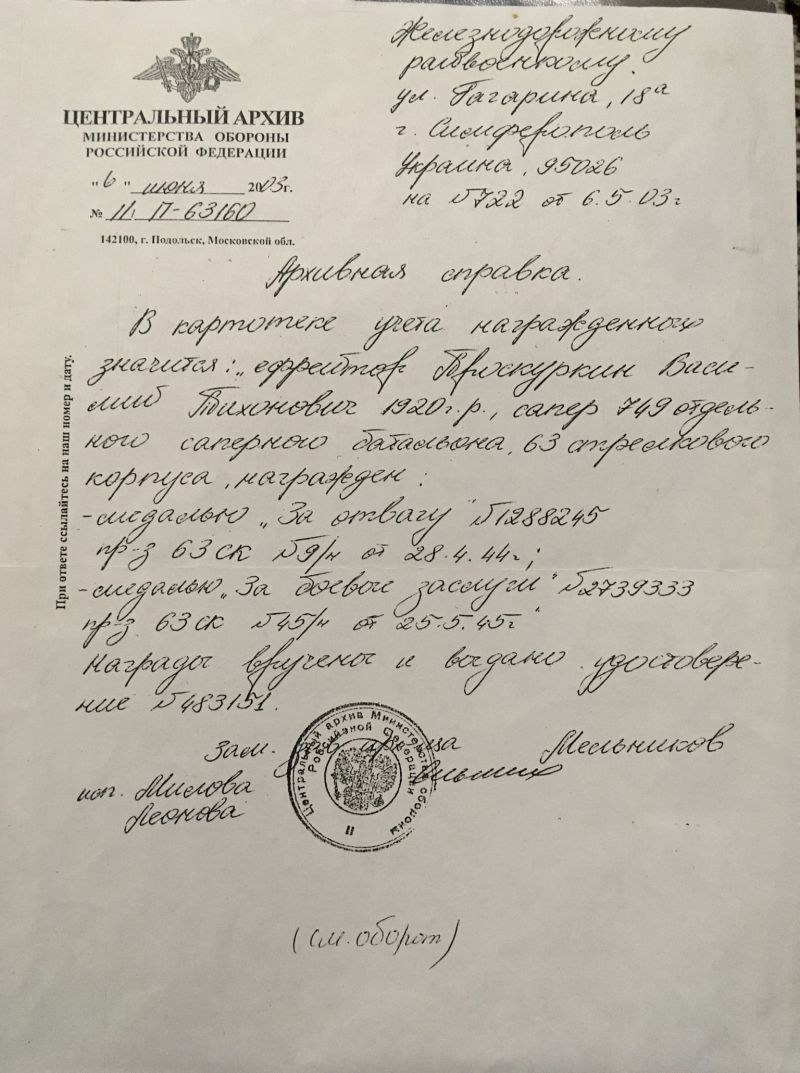 Железнодорожному
райвоенкому.
ул. Гагарина, 18а
г. Симферополь
Украина, 95026
на №722 от 6.5.03г
ЦЕНТРАЛЬНЫЙ АРХИВ
МИНИСТЕРСТВА ОБОРОНЫ
РОССИЙСКОЙ ФЕДЕРАЦИИ
"6" июня 2003г.
№ 11 П-63160
142100, г. Подольск, Московской обл.
При ответе ссылайтесь на наш номер и дату.
Архивная справка.
В картотеке учета награжденного
значится: „ефрейтор Проскуркин Васи-
лий Тихонович 1920г.р., сапер 749 отдель-
ного саперного батальона, 63 стрелкового
корпуса, награжден:
-медалью „За отвагу" №1288245
пр-з 63 ск №9/н от 28.4.44г;
-медалью „За боевые заслуги" №2739333
пр-з 63 ск №45/н от 25.5.45г"
Награды вручены и выдано удостовере-
ние №483151.
Зам. архива Мельников
исп. Милова
Леонова
Центральный архив Министерства обороны
Российской Федерации
11
(см. оборот)